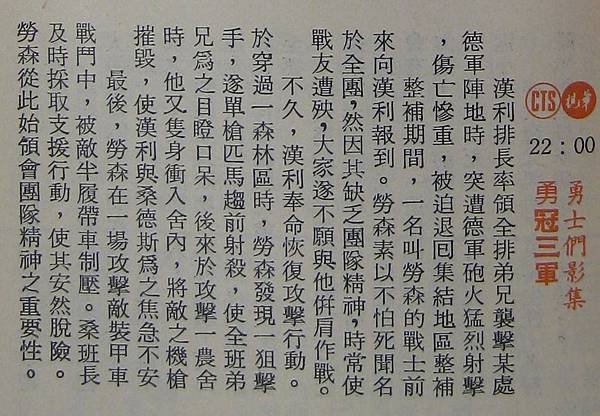 CTS 華視
22：00
勇士們影集
勇冠三軍
漢利排長率領全排弟兄襲擊某處
德軍陣地時，突遭德軍砲火猛烈射擊
，傷亡慘重，被迫退回集結地區整補
整補期間，一名叫勞森的戰士前
來向漢利報到。勞森素以不怕死聞名
於全團，然因其缺乏團隊精神，時常使
戰友遭殃，大家遂不願與他倂肩作戰。
不久，漢利奉命恢復攻擊行動。
於穿過一森林區時，勞森發現一狙擊
手，遂單槍匹馬趨前射殺，使全班弟
兄為之目瞪口呆，後來於攻擊一農舍
時，他又隻身衝入舍內，將敵之機槍
摧毀，使漢利與桑德斯為之焦急不安
最後，勞森在一場攻擊敵裝甲車
戰鬥中，被敵半履帶車制壓。桑班長
及時採取支援行動，使其安然脫險。
勞森從此始領會團隊精神之重要性。